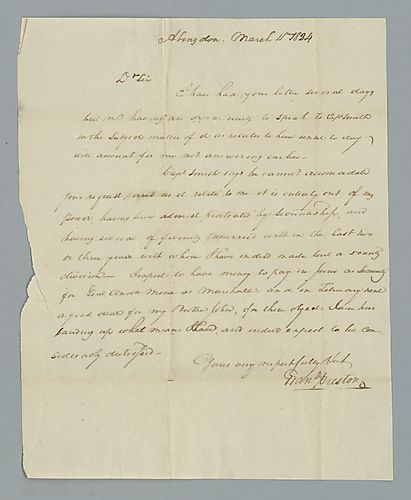 Abingdon. March 11th 1824
Dr Sir
I have had your letter several days
but not having an opportunity to speak to Capt Smith
on the subject matter of it as relates to him until to day
will account for my not answering earlier.
Capt Smith says he cannot accomodate
your request, and as it relates to me it is entirely out of my
power, having been almost prostrated by Securityship, and
having several of family married within the last two
or three years with whom I have indeed made but a scanty
division. I expect to have money to pay in June as security
for Genl as Marshall and in February next
a good deal for my Brother John, for these objects I have been
laying up what means I had, and indeed expect to be con
siderably distressed—
Yours very respectfully &c
Frans Preston